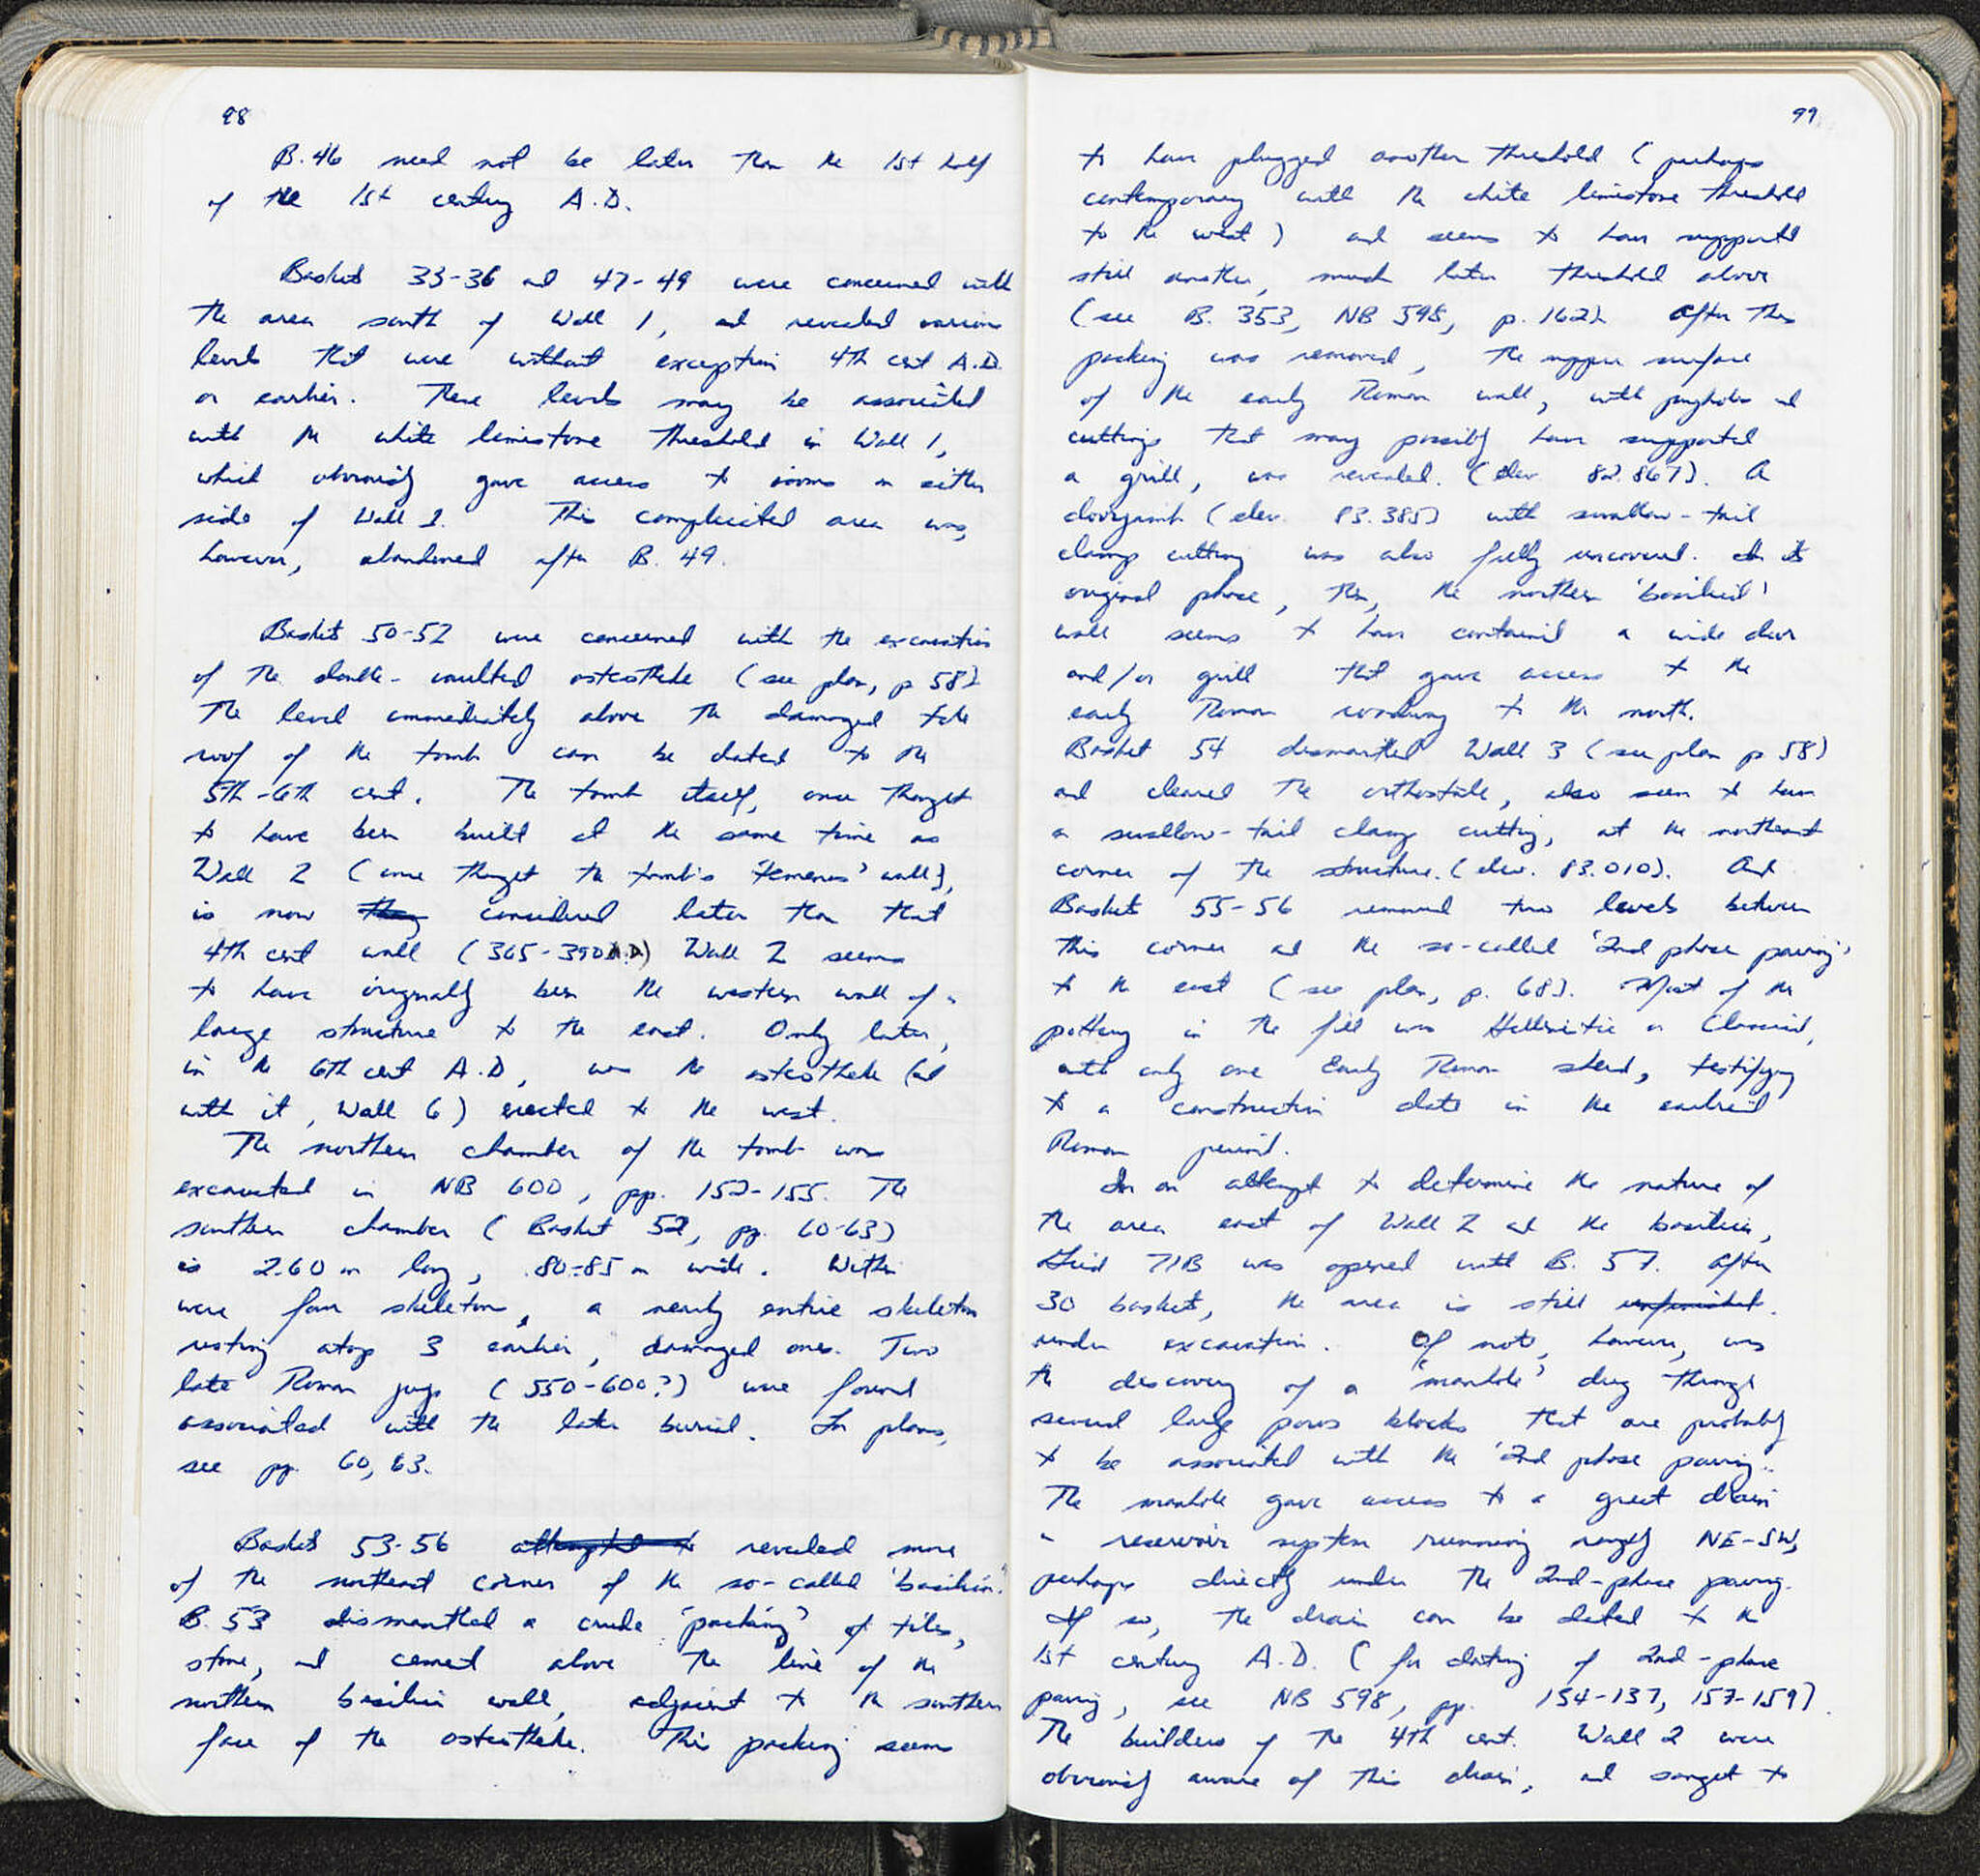 98
B. 46 need not be later than the 1st half
of the 1st century A.D.
Baskets 33-36 and 47-49 were concerned with
the area south of Wall 1, and revealed various
levels that were without exception 4th cent A.D.
or earlier. These levels may be associated
with the white limestone threshold in Wall 1,
which obviously gave access to rooms on either
side of Wall 1. This complicated area was,
however, abandoned after B. 49.
Baskets 50-52 were concerned with the excavation
of the double-vaulted osteotheke (see plan, p 58)
The level immediately above the damaged tile
roof of the tomb can be dated to the
5th-6th cent. The tomb itself, once thought
to have been built at the same time as
Wall 2 (once thought the tomb's 'temenos' wall),
is now considered later than that
4th cent wall (365-390 A.D) Wall 2 seems
to have originally been the western wall of a
large structure to the east. Only later,
in the 6th cent A.D, was the osteotheke (and
with it, Wall 6) erected to the west.
The northern chamber of the tomb was
excavated in NB 600, pp. 152-155. The
southern chamber (Basket 52, pp. 60-63)
is 2.60 m long, .80-.85 m wide. Within
were four skeletons, a nearly entire skeleton
resting atop 3 earlier, damaged ones. Two
late Roman jugs (550-600?) were found
associated with the later burial. For plans,
see pp. 60, 63.
Baskets 53-56 attempted to revealed more
of the northeast corner of the so-called 'basilica.'
B. 53 dismantled a crude 'packing' of tiles,
stone, and cement above the line of the
northern basilica wall, adjacent to the southern
face of the osteotheke. This packing seems
99
to have plugged another threshold (perhaps
contemporary with the white limestone threshold
to the west) and seems to have supported
still another, much later threshold above
(see B. 353, NB 598, p. 162). After this
packing was removed, the upper surface
of the early Roman wall, with pryholes and
cuttings that may possibly have supported
a grill, was revealed. (elev. 82.867). A
doorjamb (elev. 83.385) with swallow-tail
clamp cutting was also fully uncovered. In its
original phase, then, the northern 'basilica'
wall seems to have contained a wide door
and/or grill that gave access to the
early Roman roadway to the north.
Basket 54 dismantled Wall 3 (see plan p 58)
and cleared the orthostate, also seen to have
a swallow-tail clamp cutting, at the northeast
corner of the structure. (elev. 83.010). And
Baskets 55-56 removed two levels between
this corner and the so-called '2nd phase paving'
to the east (see plan, p. 68). Most of the
pottery in the fill was Hellenistic or Classical,
with only one Early Roman sherd, testifying
to a construction date in the earliest
Roman period.
In an attempt to determine the nature of
the area east of Wall 2 and the basilica,
Grid 71B was opened with B. 57. After
30 baskets, the area is still unfinished.
under excavation. Of note, however, was
the discovery of a 'manhole' dug through
several large poros blocks that are probably
to be associated with the '2nd phase paving'.
The manhole gave access to a great drain
or reservoir system running roughly NE-SW,
perhaps directly under the 2nd-phase paving.
If so, the drain can be dated to the
1st century A.D. (for dating of 2nd-phase
paving, see NB 598, pp. 134-137, 157-159).
The builders of the 4th cent. Wall 2 were
obviously aware of this drain, and sought to